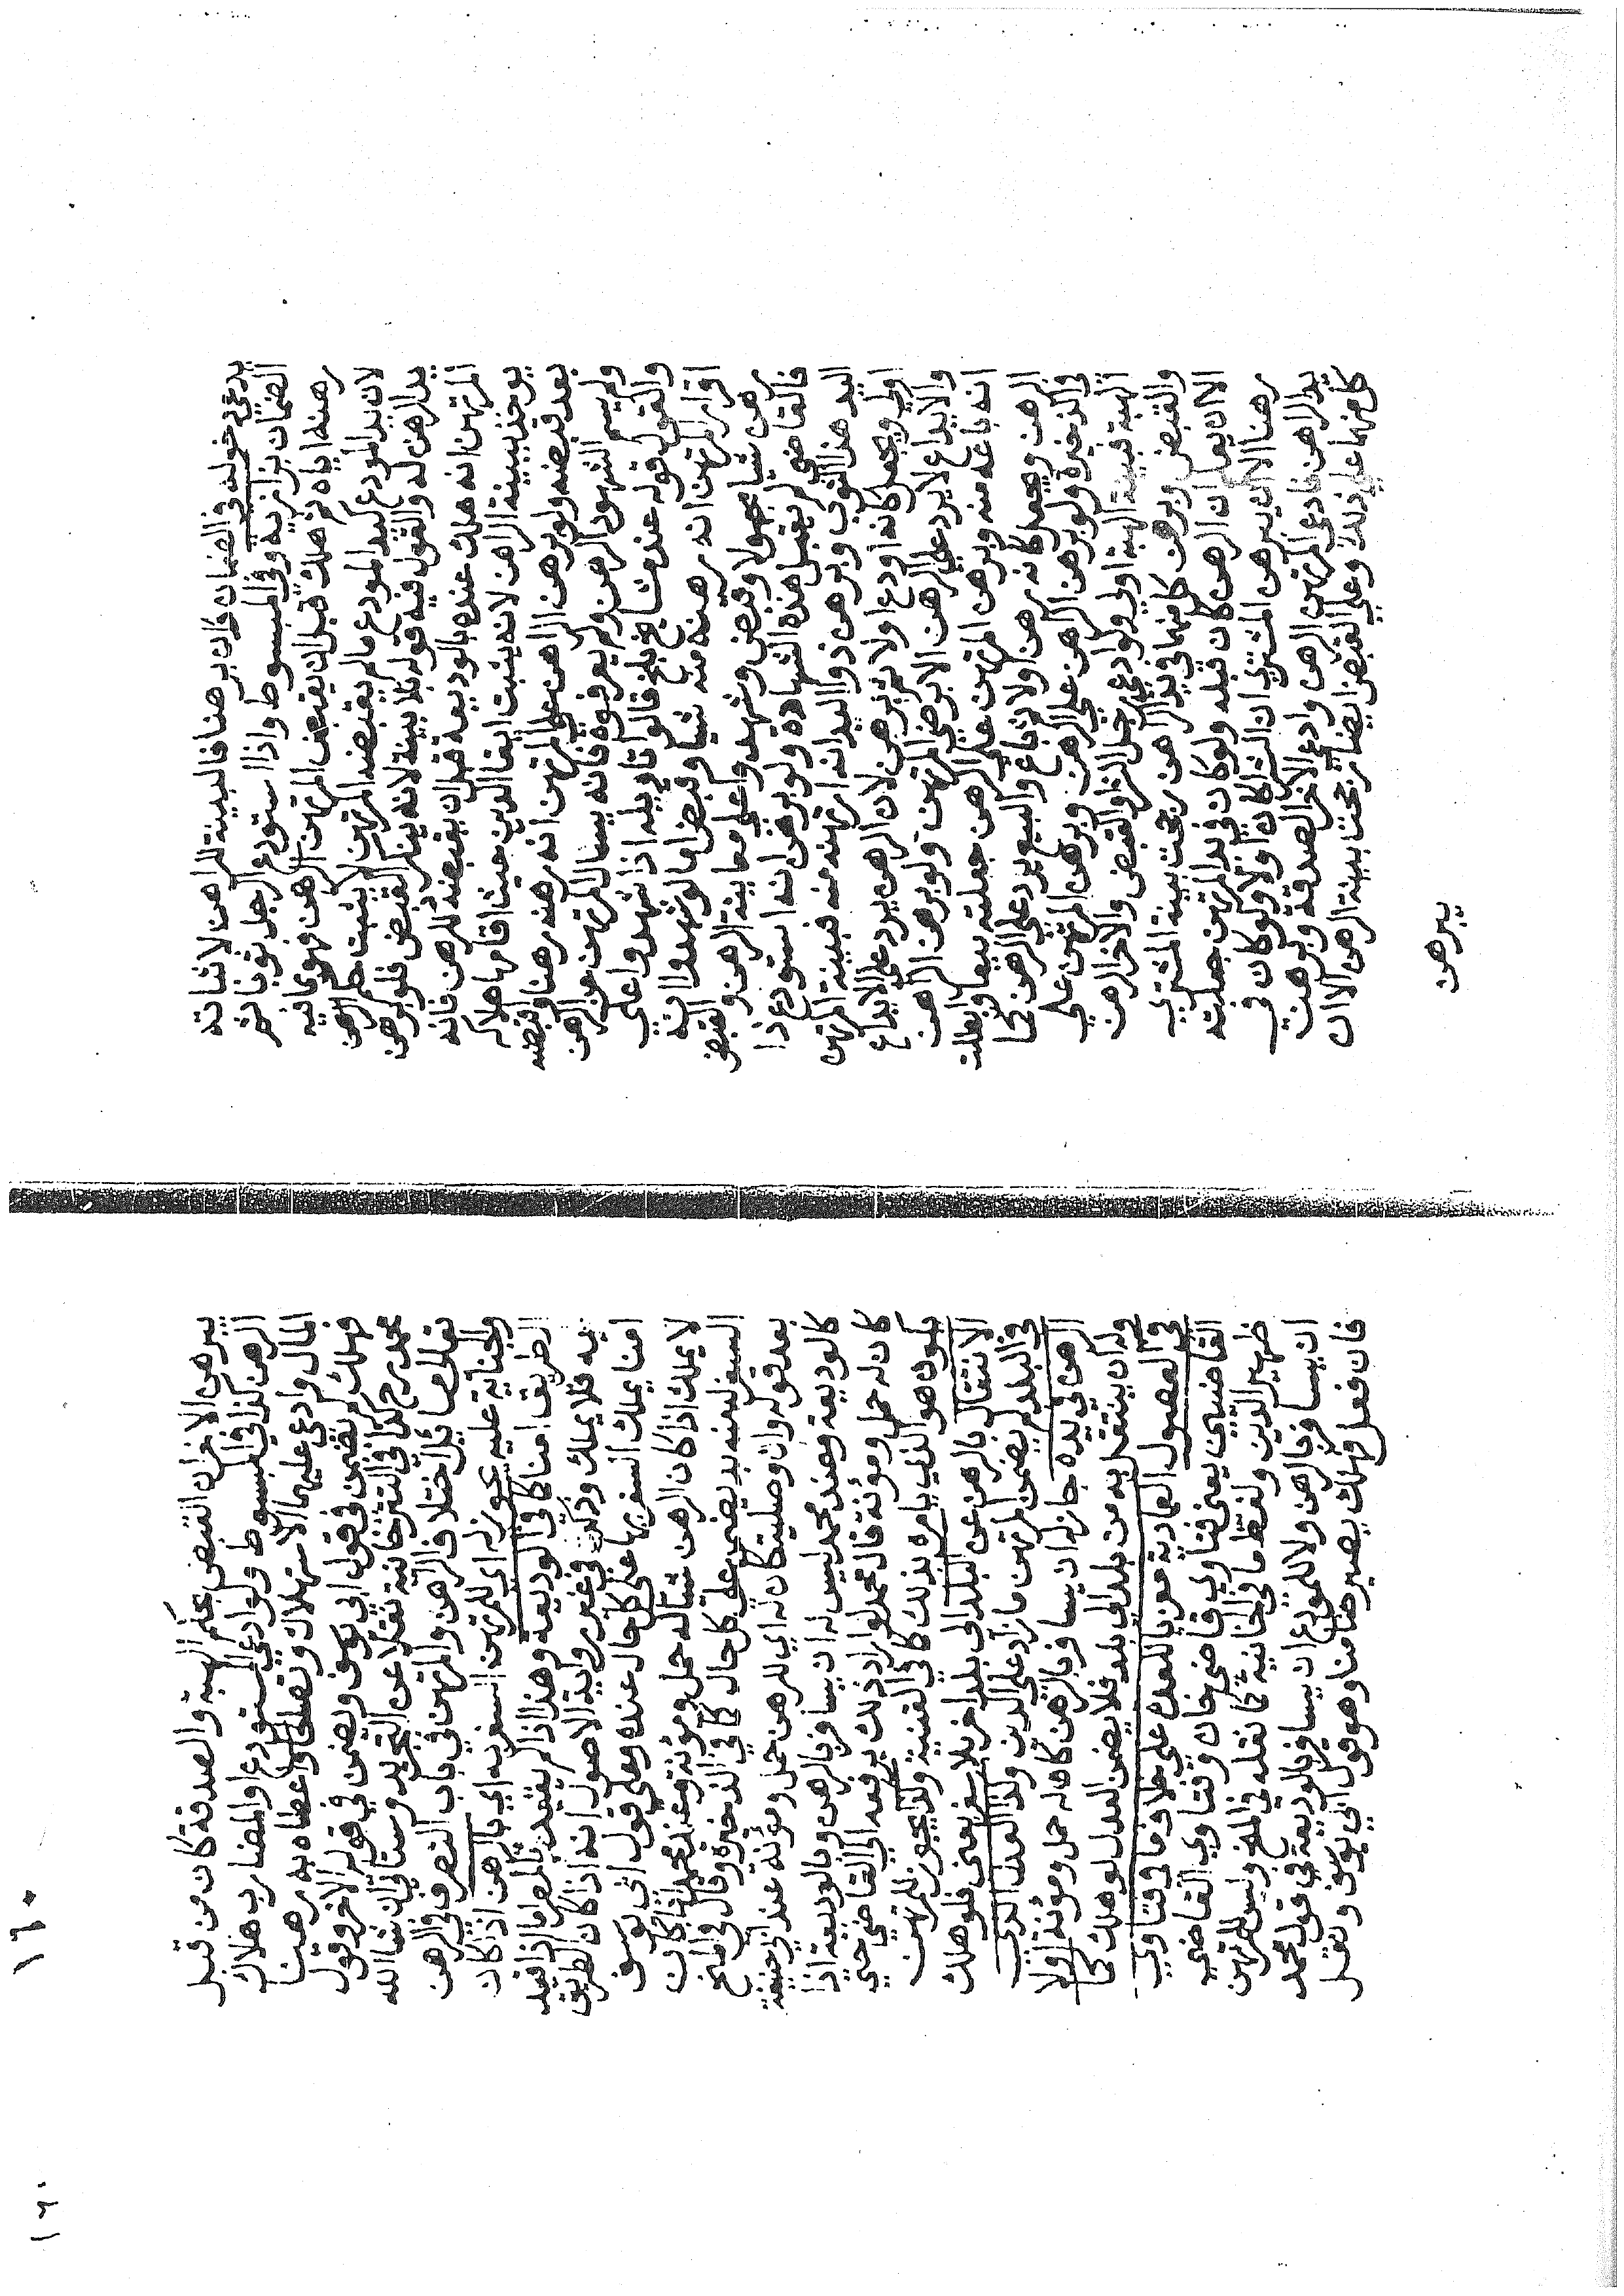 يدعي دخوله في الضمان فان برهنا فالبينة للراهن لاثباته
الضمان بزازية وفي المبسوط واذا استودع الرجل ثوبا ثم
رهنه اياه ثم هلك قبل ان يقبض المرتهن الرهن فهو امانة
لان يد المودع كيد المودع مالم يقبضه المرتهن لا يثبت حكم الرهن
يد الرهن له والقول فيه قوله بلا بينة لانه ينكر القبض فلو برهن
المرتهن انه هلك عنده بالوديعة قبل ان يقبضه للرهن فانه
يوخذ ببينة الراهن لانه يثبت ايفا الدين حيث اقامها هلاكه
بعد قبضه ولو برهن الراهن على المرتهن انه رهنه رهنا وقبضه
ولم يسم الشهود الرهن ولم يعرفوه فانه يسال المرتهن عن الرهن
والقول قوله عند مشايخ بلخ قالوا تاويله اذا شهدوا على
اقرار المرتهن انه رهنه منه شيا وقبض اما لو شهدوا انه
رهن شيا مجهولا وقبض وشهدوا على معاينة الرهن والقبض
فالقاضي لم يقبل هذه الشهادة ولو برهن انه استودع ذا
اليد هذا الثوب وبرهن ذو اليد انه ارتهنه منه فبينة المرتهن
اولى ويجعل كانه اودع اولا ثم رهن لان الرهن يرد على الايداع
والايداع لا يرد على الرهن الا برضى المرتهن ولو برهن الراهن
انه باعه منه وبرهن المرتهن على الرهن جعلته بيعا وابطلت
الرهن ويجعل كانه رهن اولا ثم باع والبيع يرد على الرهن كما
في الذخيرة ولو برهن الراهن على الرهن وبرهن المرتهن على
الهبة فبينة الهبة اولى ولو ادعى رجل الشرا والقبض والاخر الرهن
والقبض وبرهن كل منهما في يد الراهن رجحت بينة المشتري
الا ان يعلم ان الرهن كان قبله ولو كان في يد المرتهن جعلته
رهنا الا ان يبرهن المشتري ان الشرا كان اولا ولو كان في
يد الراهن فادعى المرتهن الرهن وادعى الاخر الصدقة وبرهنت
كل منهما على ذلك وعلى القبض ايضا رجحت بينة الرهن الا ان
يبرهن
١٦٠
يبرهن الاخر ان القبض بحكم الهبة والصدقة كان من قبل
الرهن كذا في المبسوط ولو ادعى المستودع والمضارب هلاك
المال وادعى عليهما الاستهلاك وتصالحا واعطاه به رهنا
فهلك لم يضمن في قول ابي يوسف ويضمن في قوله الاخر وقول
محمد رح كذا في التترخانية نقلا عن التجريد وستاتي ان شا الله
تعالى مسائل اختلاف الراهن والمرتهن في باب التصرف في الرهن
والجناية عليه يجوز له اي للمرتهن السفر به اي بالرهن اذا كان
الطريق امنا كما في الوديعة وهذا اذا لم يقيد بالمصر اما اذا قيد
به فلا يملك وذكر في غير رواية الاصول انه اذا كان الطريق
امنا يملك السفر بها على كل حال عنده وعلى قول ابي يوسف
لا يملك اذا كان الرهن شيا له حمل ومؤنة وعند محمد ايا كان
السفر بعيد يضمن على كل حال كما في الذخيرة وقال في المنح
بعد قوله وان وصلية كان له اي للرهن حمل ومؤنة عند ابي حنيفة
كالوديعة وعند محمد ليس له ان يسافر بالرهن وبالوديعة اذا
كان له حمل ومؤنة قال محمد لو اراد ذلك يرفعه الى القاضي حتى
يكون هو الذي يامره بذلك كما في القنية وكذا يجوز للمرتهن
الانتقال بالرهن عن البلد الى بلد اخر بلا سفر يعني فلو هلك
في البلد لم يضمن المرتهن ما زاد على الدين وكذا العدل الذي
الرهن في يده جاز له ان يسافر بالرهن كما له حمل ومؤنة او لا
وله ان ينتقل به من بلد الى بلد فلا يضمن العدل لو هلك كما
في الفصول العمادية معزيا للعدة على خلاف ما في فتاوي
القاضيين يعني فتاوي قاضي خان وفتاوي القاضي
ظهير الدين ولفظ ما في الخانية كما نقله في المنح وليس للمرتهن
ان يسافر بالرهن ولا للمودع ان يسافر بالوديعة في قول محمد
فان فعل فهلك يصير ضامنا وهو قول ابي يوسف ونقل
١٦٠